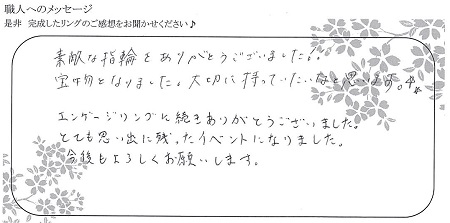 職人へのメッセージ
是非 完成したリングのご感想をお聞かせください♪
素敵な指輪をありがとうございました!!
宝物となりました。大切に持っていたいなと思います。
エンゲージリングに続きありがとうございました。
とても思い出に残ったイベントになりました。
今後もよろしくお願いします。